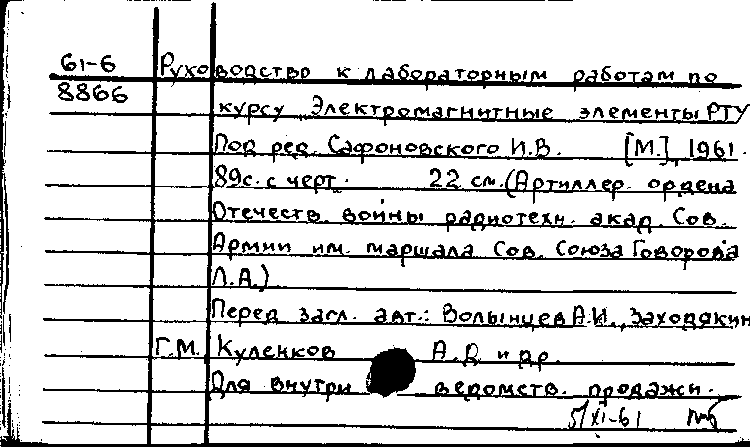 61-6 Руководство к лабораторным работам по
8866 курсу "Электромагнитные элементы РТУ
Под ред. Сафоновского И.В. [М.], 1961.
89с. с черт. 22 см. (Артиллер. ордена
Отечеств. войны радиотехн. акад. Сов.
Армии им. маршала Сов. Союза Говорова
Л.А.)
Перед загл. авт.: Волынцев А.И., Заходякин
Г.М. Куленков А.Д. и др.
Для внутри ведомств. продажи.
5/XI-61